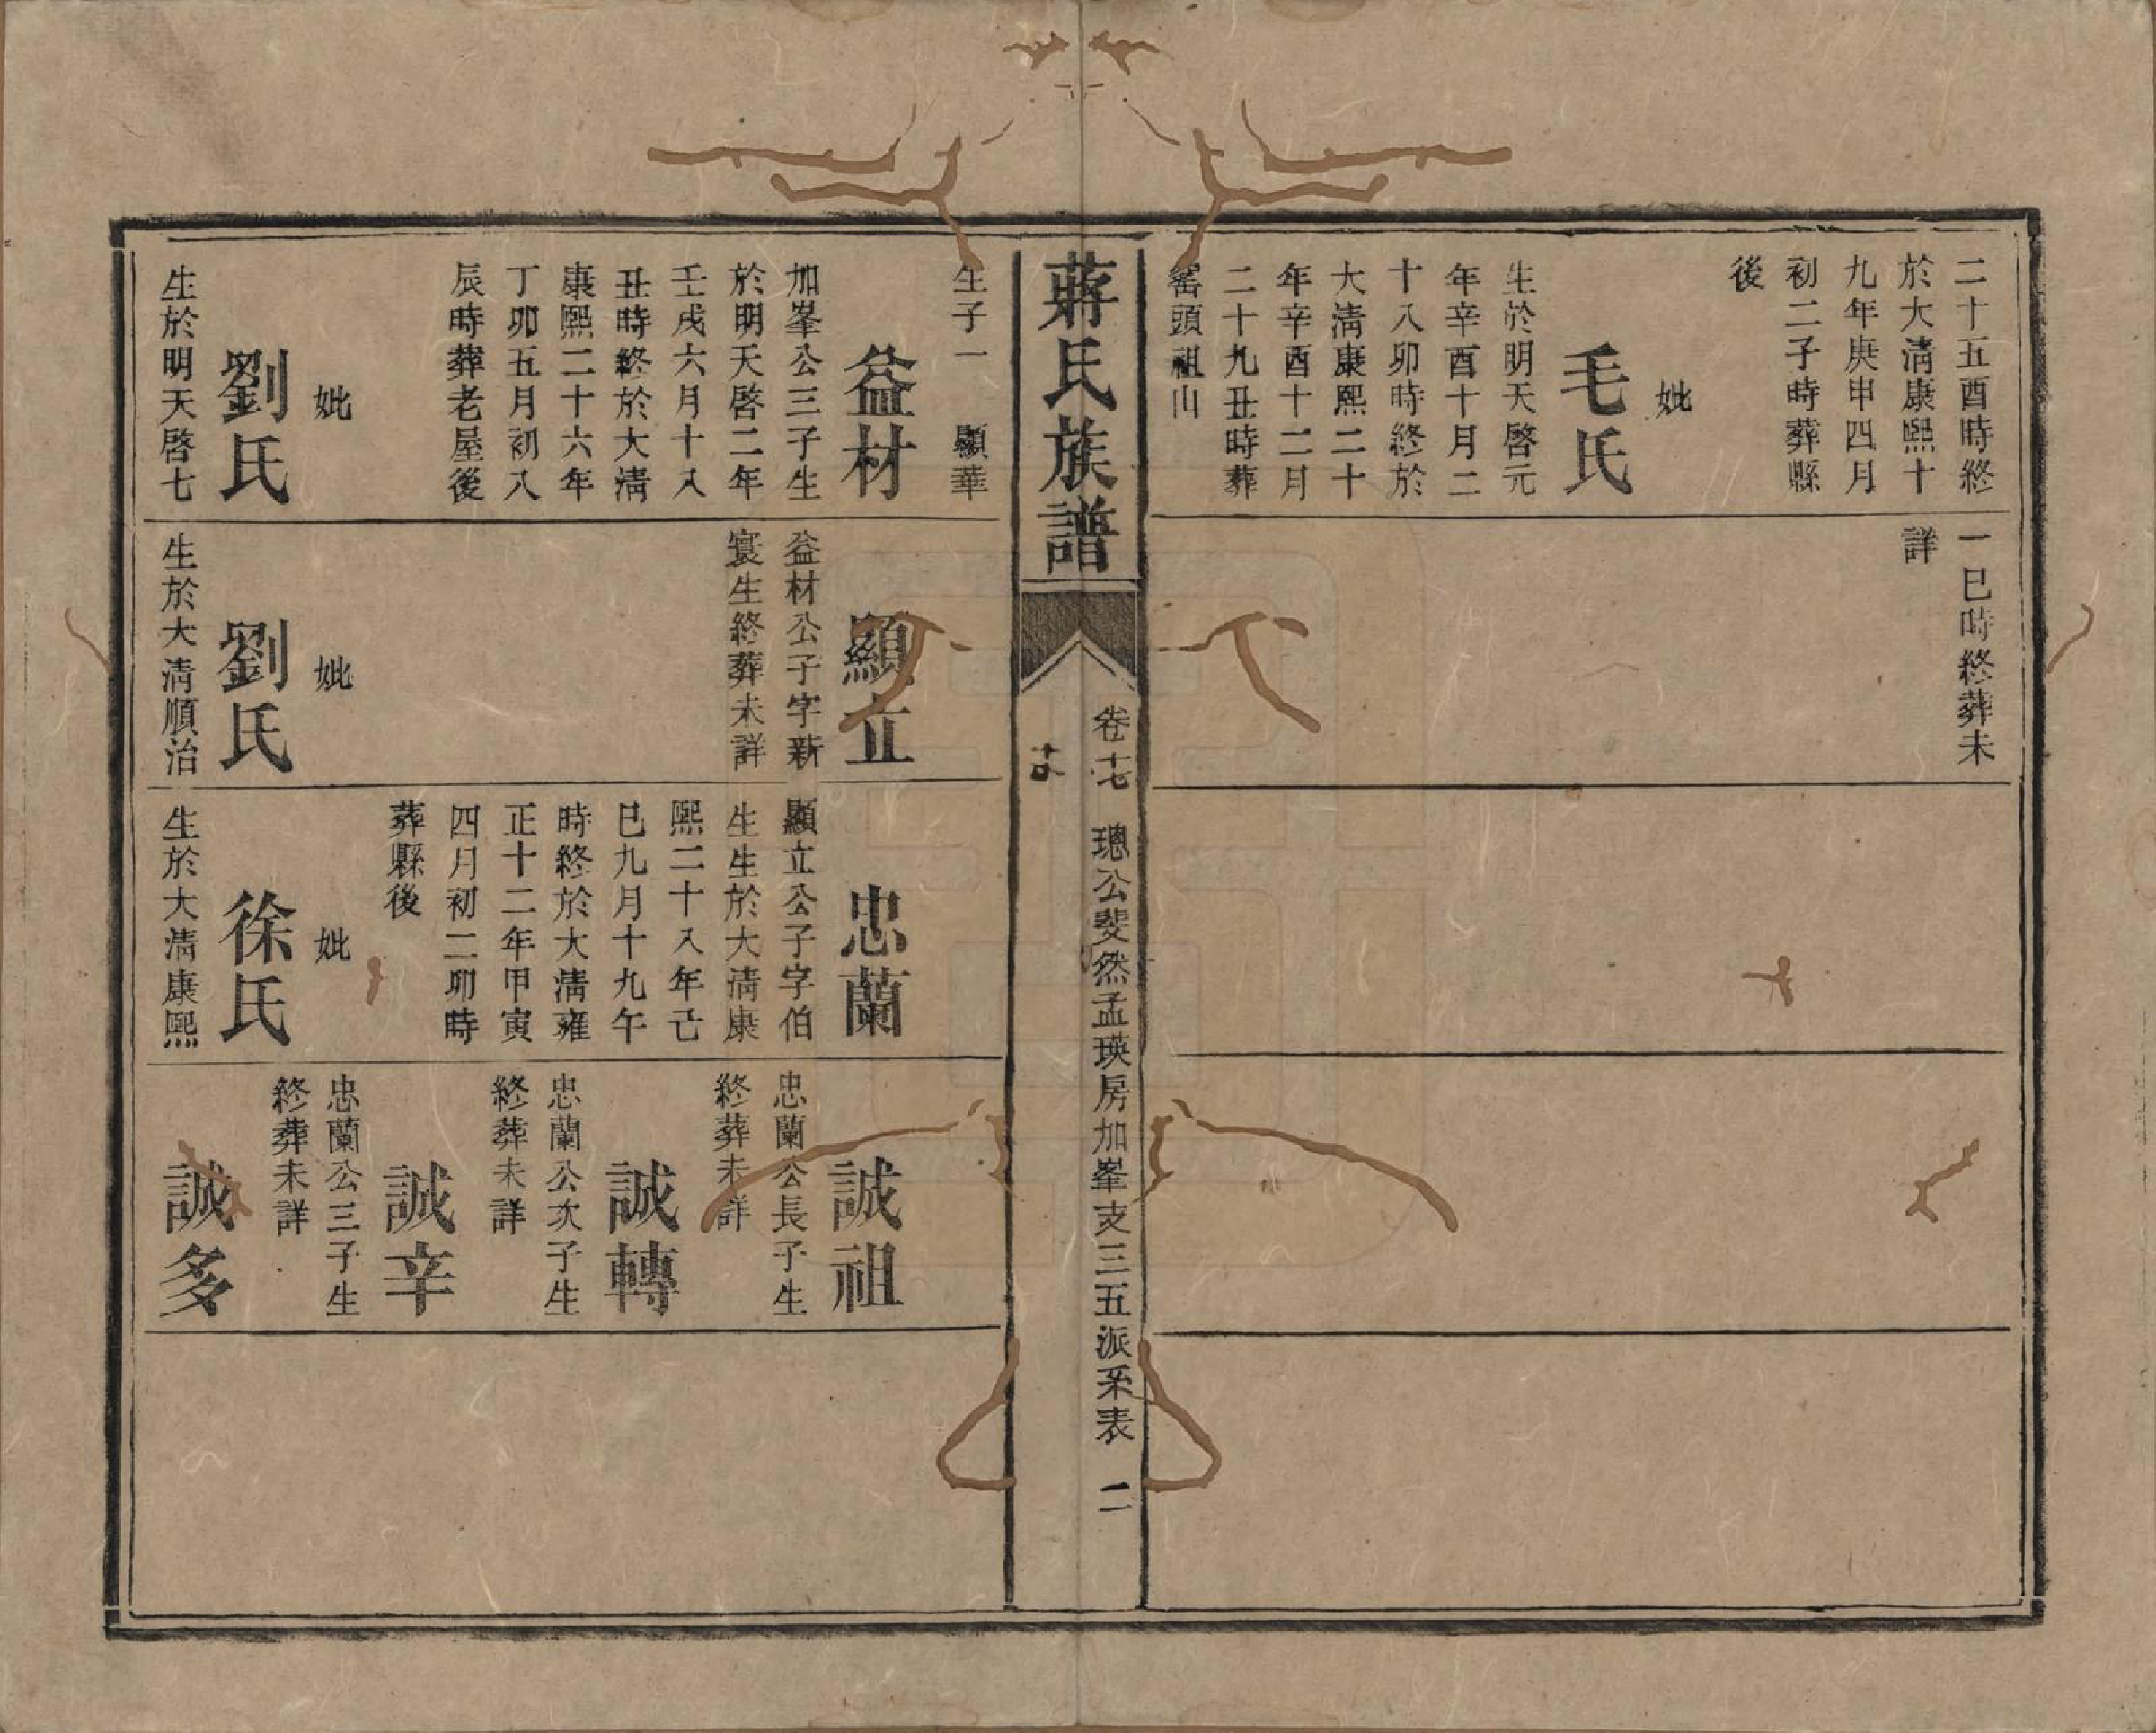 二十五酉時終
於大淸康熙十
九年庚申四月
初二子時葬縣
後
妣
毛氏
生於明天啓元
年辛酉十月二
十八卯時終於
大淸康熙二十
年辛酉十二月
二十九丑時葬
窰頭祖山
一巳時終葬未
詳
蔣氏族譜
卷十七
璁公斐然孟瑛房加峯支三五派系表
二
生子一 顯華
益材
加峯公三子生
於明天啓二年
壬戌六月十八
丑時終於大淸
康熙二十六年
丁卯五月初八
辰時葬老屋後
妣
劉氏
生於明天啓七
顯立
益材公子字新
寰生終葬未詳
妣
劉氏
生於大淸順治
忠蘭
顯立公子字伯
生生於大淸康
熙二十八年己
巳九月十九午
時終於大淸雍
正十二年甲寅
四月初二卯時
葬縣後
妣
徐氏
生於大淸康熙
誠祖
忠蘭公長子生
終葬未詳
誠轉
忠蘭公次子生
終葬未詳
誠辛
忠蘭公三子生
終葬未詳
誠多